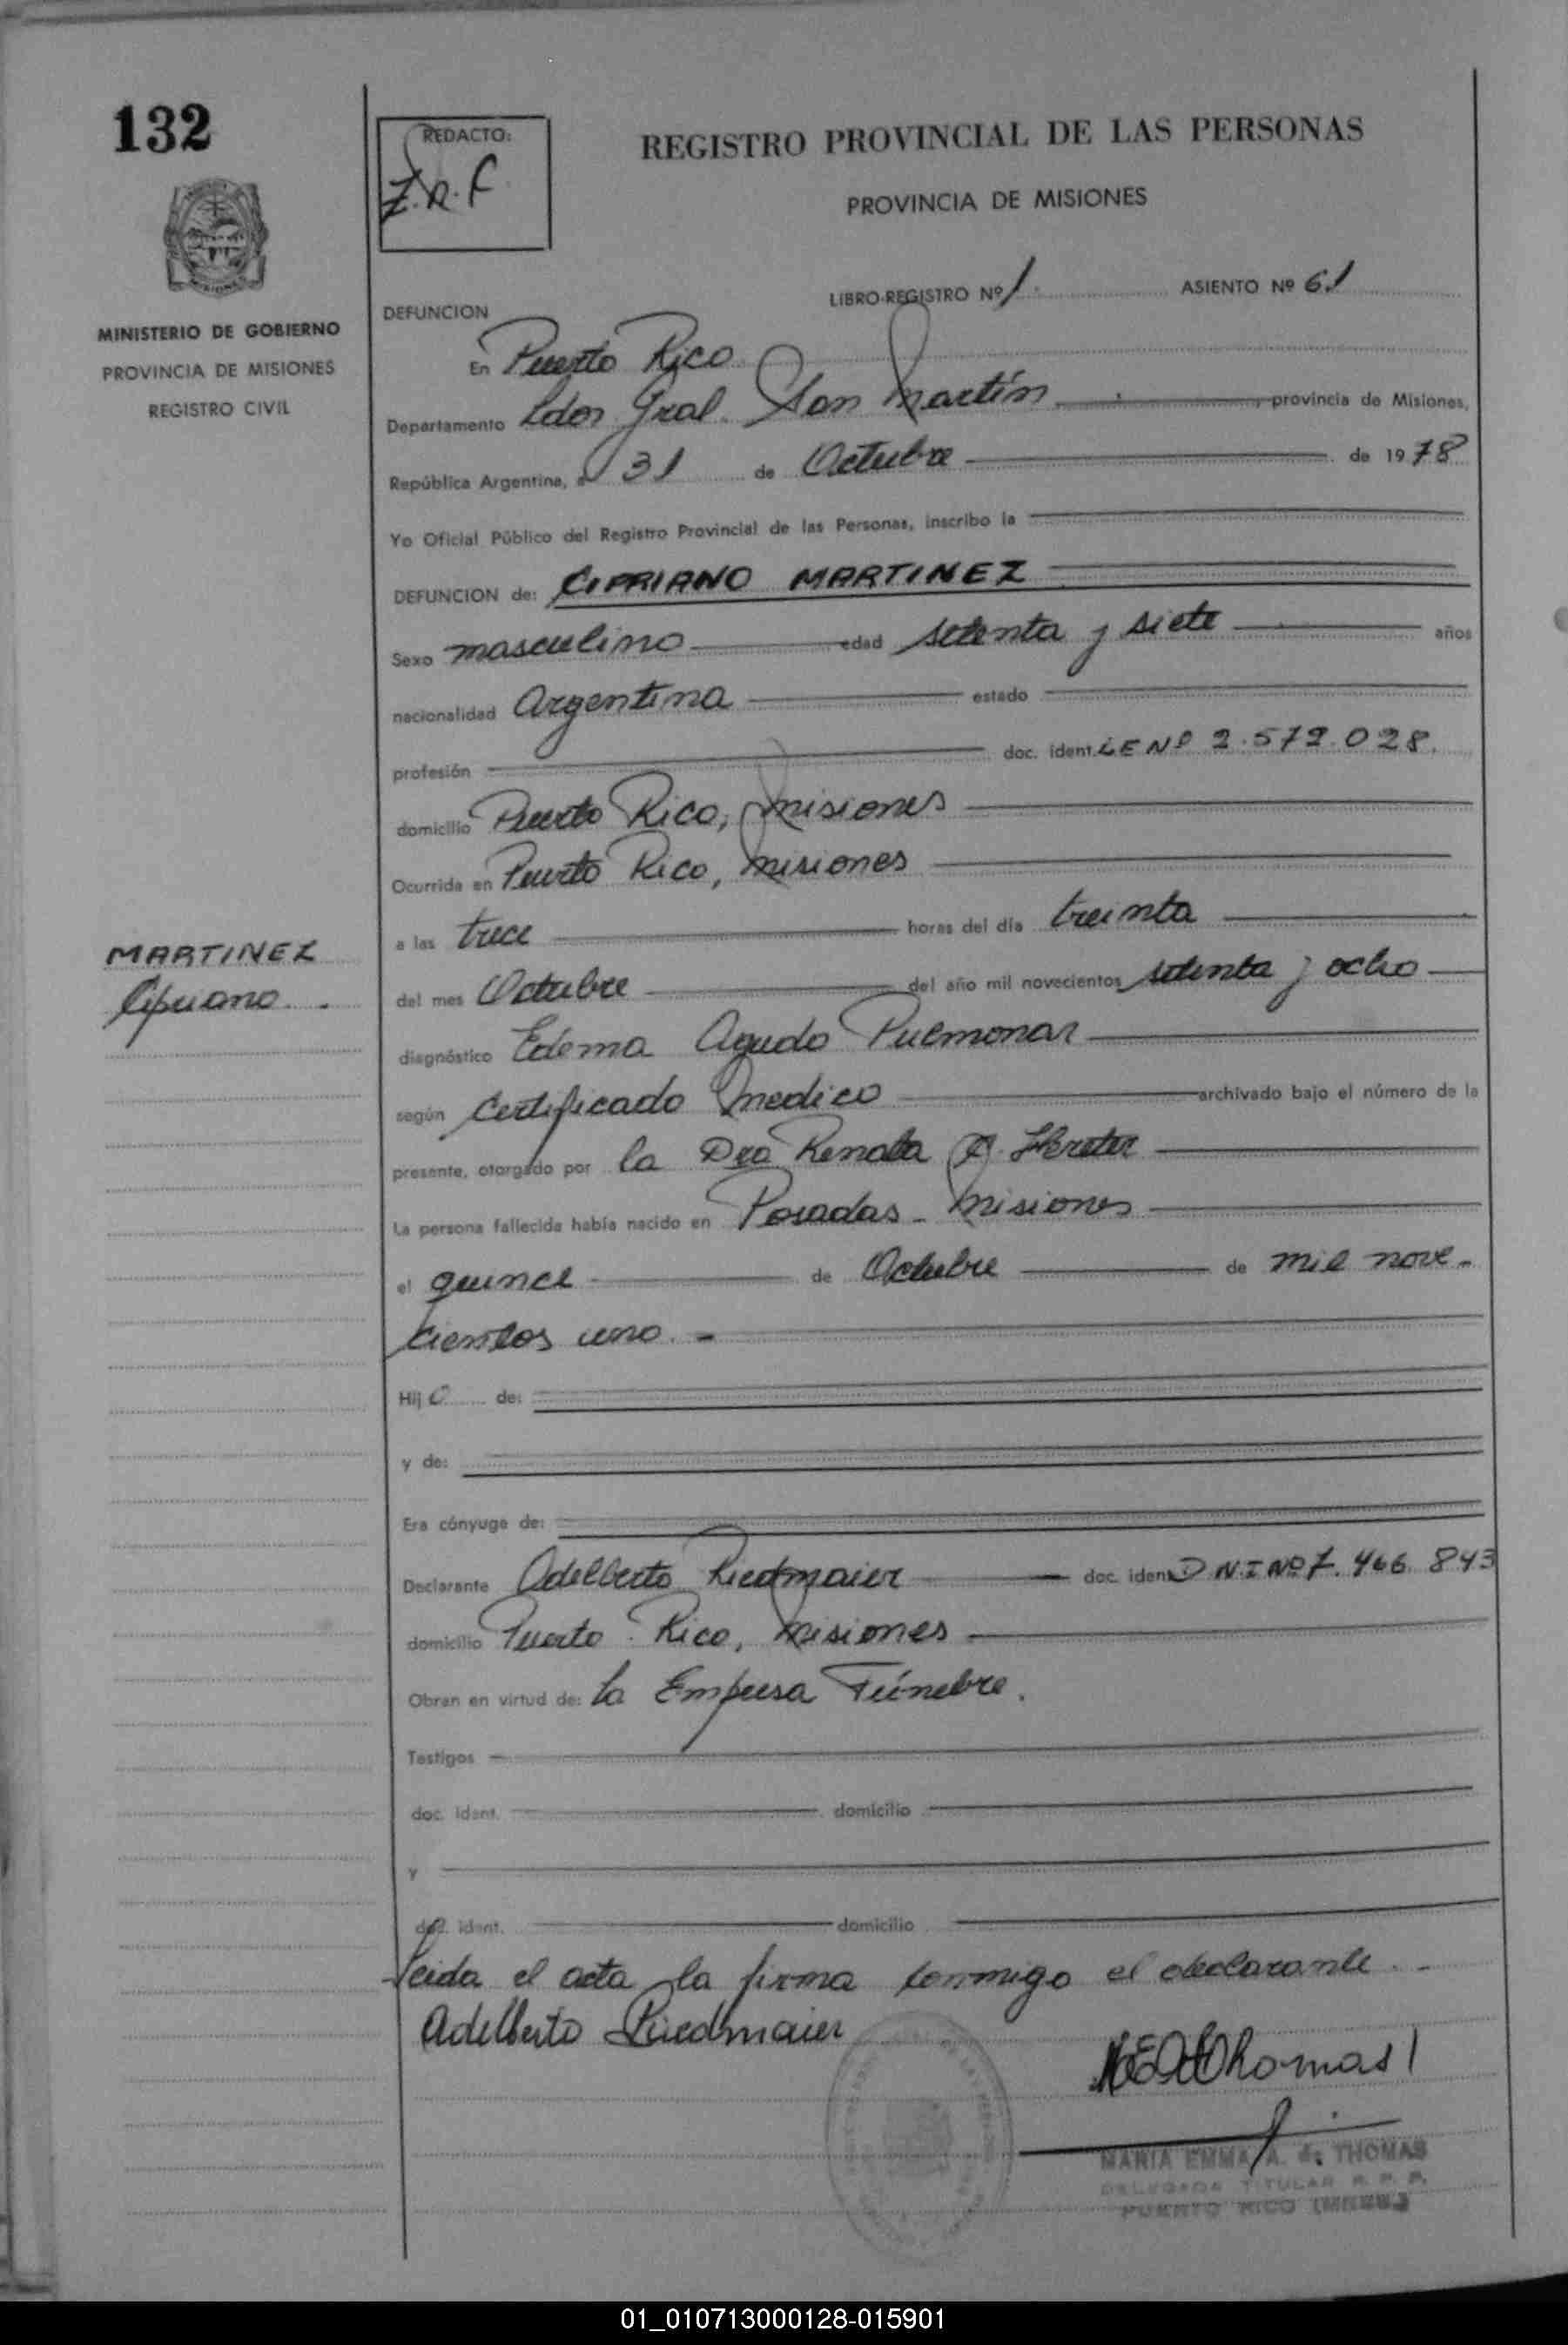 132
REDACTO:
Z.R.F.
REGISTRO PROVINCIAL DE LAS PERSONAS
PROVINCIA DE MISIONES
MINISTERIO DE GOBIERNO
PROVINCIA DE MISIONES
REGISTRO CIVIL
LIBRO-REGISTRO Nº 1 ASIENTO Nº 61
DEFUNCION
En Puerto Rico
Departamento Ldor Gral. San Martín, provincia de Misiones,
República Argentina, a 31 de Octubre de 1978
Yo Oficial Público del Registro Provincial de las Personas, inscribo la
DEFUNCION de: CIPRIANO MARTINEZ
Sexo masculino edad setenta y siete años
nacionalidad Argentina estado
profesión doc. ident. LE Nº 2.572.028.
domicilio Puerto Rico, Misiones
Ocurrida en Puerto Rico, Misiones
a las trece horas del día treinta
MARTINEZ
Cipriano.
del mes Octubre del año mil novecientos setenta y ocho
diagnóstico Edema Agudo Pulmonar
según Certificado Medico archivado bajo el número de la
presente, otorgado por la Dra Renata
La persona fallecida había nacido en Posadas - Misiones
el quince de Octubre de mil nove-
cientos uno. -
Hijo de:
y de:
Era cónyuge de:
Declarante Adelberto Riedmaier doc. ident. DNI Nº 7.466.843
domicilio Puerto Rico, Misiones
Obran en virtud de: la Empresa Fúnebre.
Testigos
doc. ident. domicilio
y
doc. ident. domicilio
Leida el acta la firma conmigo el declarante. -
Adelberto Riedmaier
Thomas
MARIA EMMA A. de THOMAS
DELEGADA TITULAR R. P. P.
PUERTO RICO (MNES.)
01_010713000128-015901